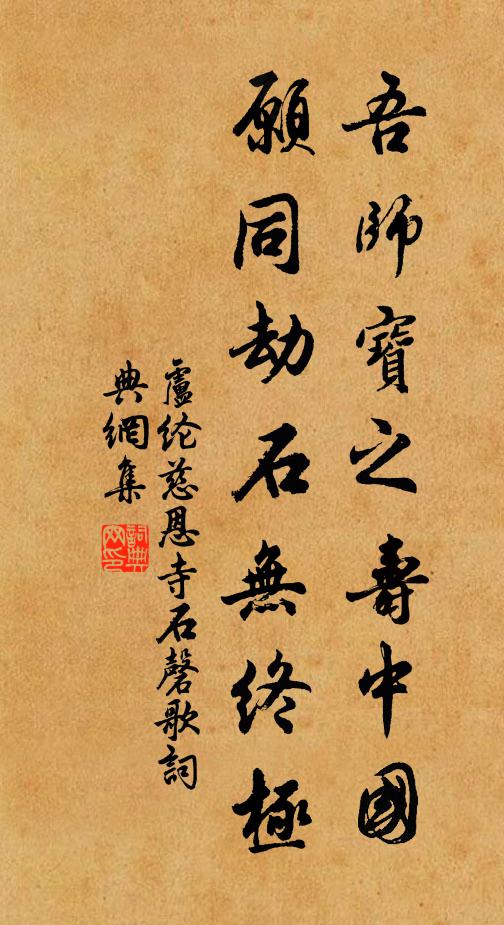 吾師寶之壽中國
願同劫石無終極
盧纶慈恩寺石磬歌詞
典網集
詞典
网印